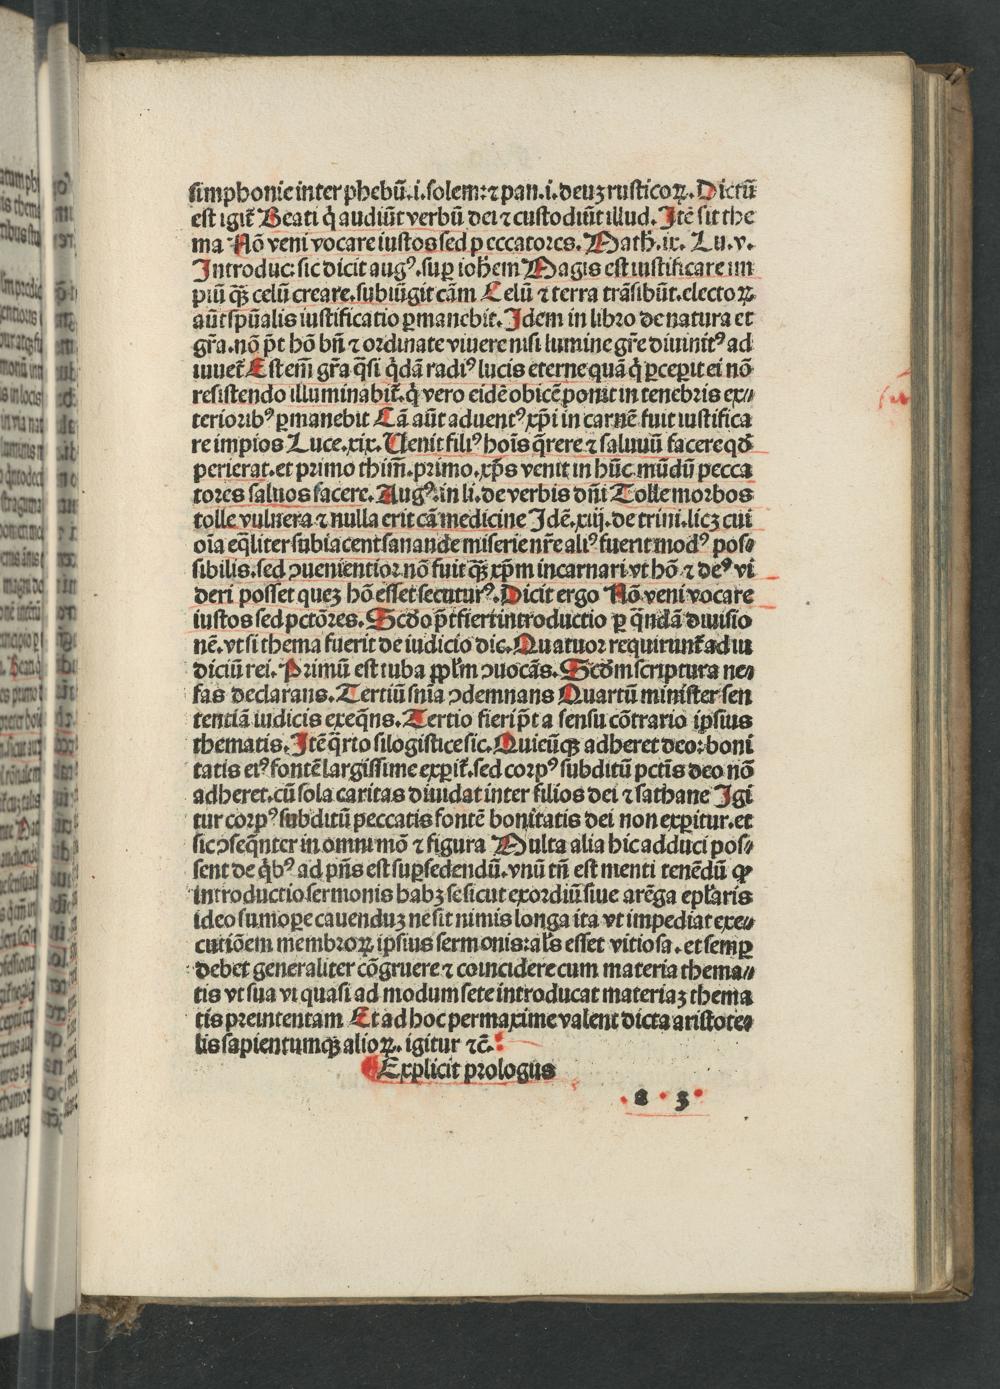 simphonie inter phebū.i.solem:⁊ pan.i.deuꝫ rusticoꝝ. Dictū
est igit̄ Beati q̇ audiūt verbū dei ⁊ custodiūt illud. Itē sit the
ma Nō veni vocare iustos sed peccatores. Math̄.ix. Lu.v.
Introduc: sic dicit augꝰ.suꝑ ioh̄em Magis est iustificare im
piū qꝫ̄ celū creare.subiūgit cām Celū ⁊ terra trāsibūt.electoꝝ
aūt spūalis iustificatio ꝑmanebit. Idem in libro de natura et
gr̄a.nō p̄t hō bn̄ ⁊ ordinate viuere nisi lumine gr̄e diuinitꝰ ad
iuuet̄ Est em̄ gr̄a q̄si q̄dā radiꝰ lucis eterne quā q̇ ꝑceperit ei nō
resistendo illuminabit̄.q̇ vero eidē obicē ponit in tenebris ex⸗
terioribꝰ ꝑmanebit Cā aūt aduentꝰ xp̄i in carnē fuit iustifica
re impios Luce.xix. Uenit filiꝰ hoīs q̄rere ⁊ saluuū facere qd̄
perierat.et primo thim̄.primo.xp̄s venit in hūc mūdū pecca
tores saluos facere. Augꝰ.in li.de verbis dn̄i Tolle morbos
tolle vulnera ⁊ nulla erit cā medicine Idē.xiij.de trini.licꝫ cui
oīa eq̄liter subiacent sanande miserie nr̄e aliꝰ fuerit modꝰ pos⸗
sibilis.sed ꝯuenientior nō fuit qꝫ̄ xp̄m incarnari vt hō ⁊ deꝰ vi
deri posset queꝫ hō esset secuturꝰ. Dicit ergo Nō veni vocare
iustos sed pctōres. Scd̄o p̄t fieri introductio ꝑ q̄ndā diuisio
nē.vt si thema fuerit de iudicio dic. Quatuor requirunt̄ ad iu
diciū rei. Primū est tuba pp̄l̄m ꝯuocās. Scd̄m scriptura ne⸗
fas declarans. Tertiū sn̄ia ꝯdemnans Quartū minister sen
tentiā iudicis exeq̄ns. Tertio fieri p̄t a sensu cōtrario ipsius
thematis. Itē q̄rto silogistice sic. Quicūqꝫ adheret deo: boni
tatis eiꝰ fontē largissime exꝑit̄.sed corpꝰ subditū pctīs deo nō
adheret.cū sola caritas diuidat inter filios dei ⁊ sathane Igi
tur corpꝰ subditū peccatis fontē bonitatis dei non exꝑitur.et
sic ꝯseq̄nter in omni mō ⁊ figura Multa alia hic adduci pos⸗
sent de q̇bꝰ ad p̄ns est suꝑsedendū.vnū tn̄ est menti tenēdū ꝙ
introductio sermonis habꝫ se sicut exordiū siue arēga epl̄aris
ideo sumoꝑe cauenduꝫ ne sit nimis longa ita vt impediat exe⸗
cutiōem membroꝝ ipsius sermonis:al̄s esset vitiosa.et semꝑ
debet generaliter cōgruere ⁊ coincidere cum materia thema⸗
tis vt sua vi quasi ad modum sete introducat materiaꝫ thema
tis preintentam Et ad hoc permaxime valent dicta aristote⸗
lis sapientumqꝫ alioꝝ. igitur ⁊c̄.
Explicit prologus
a 3